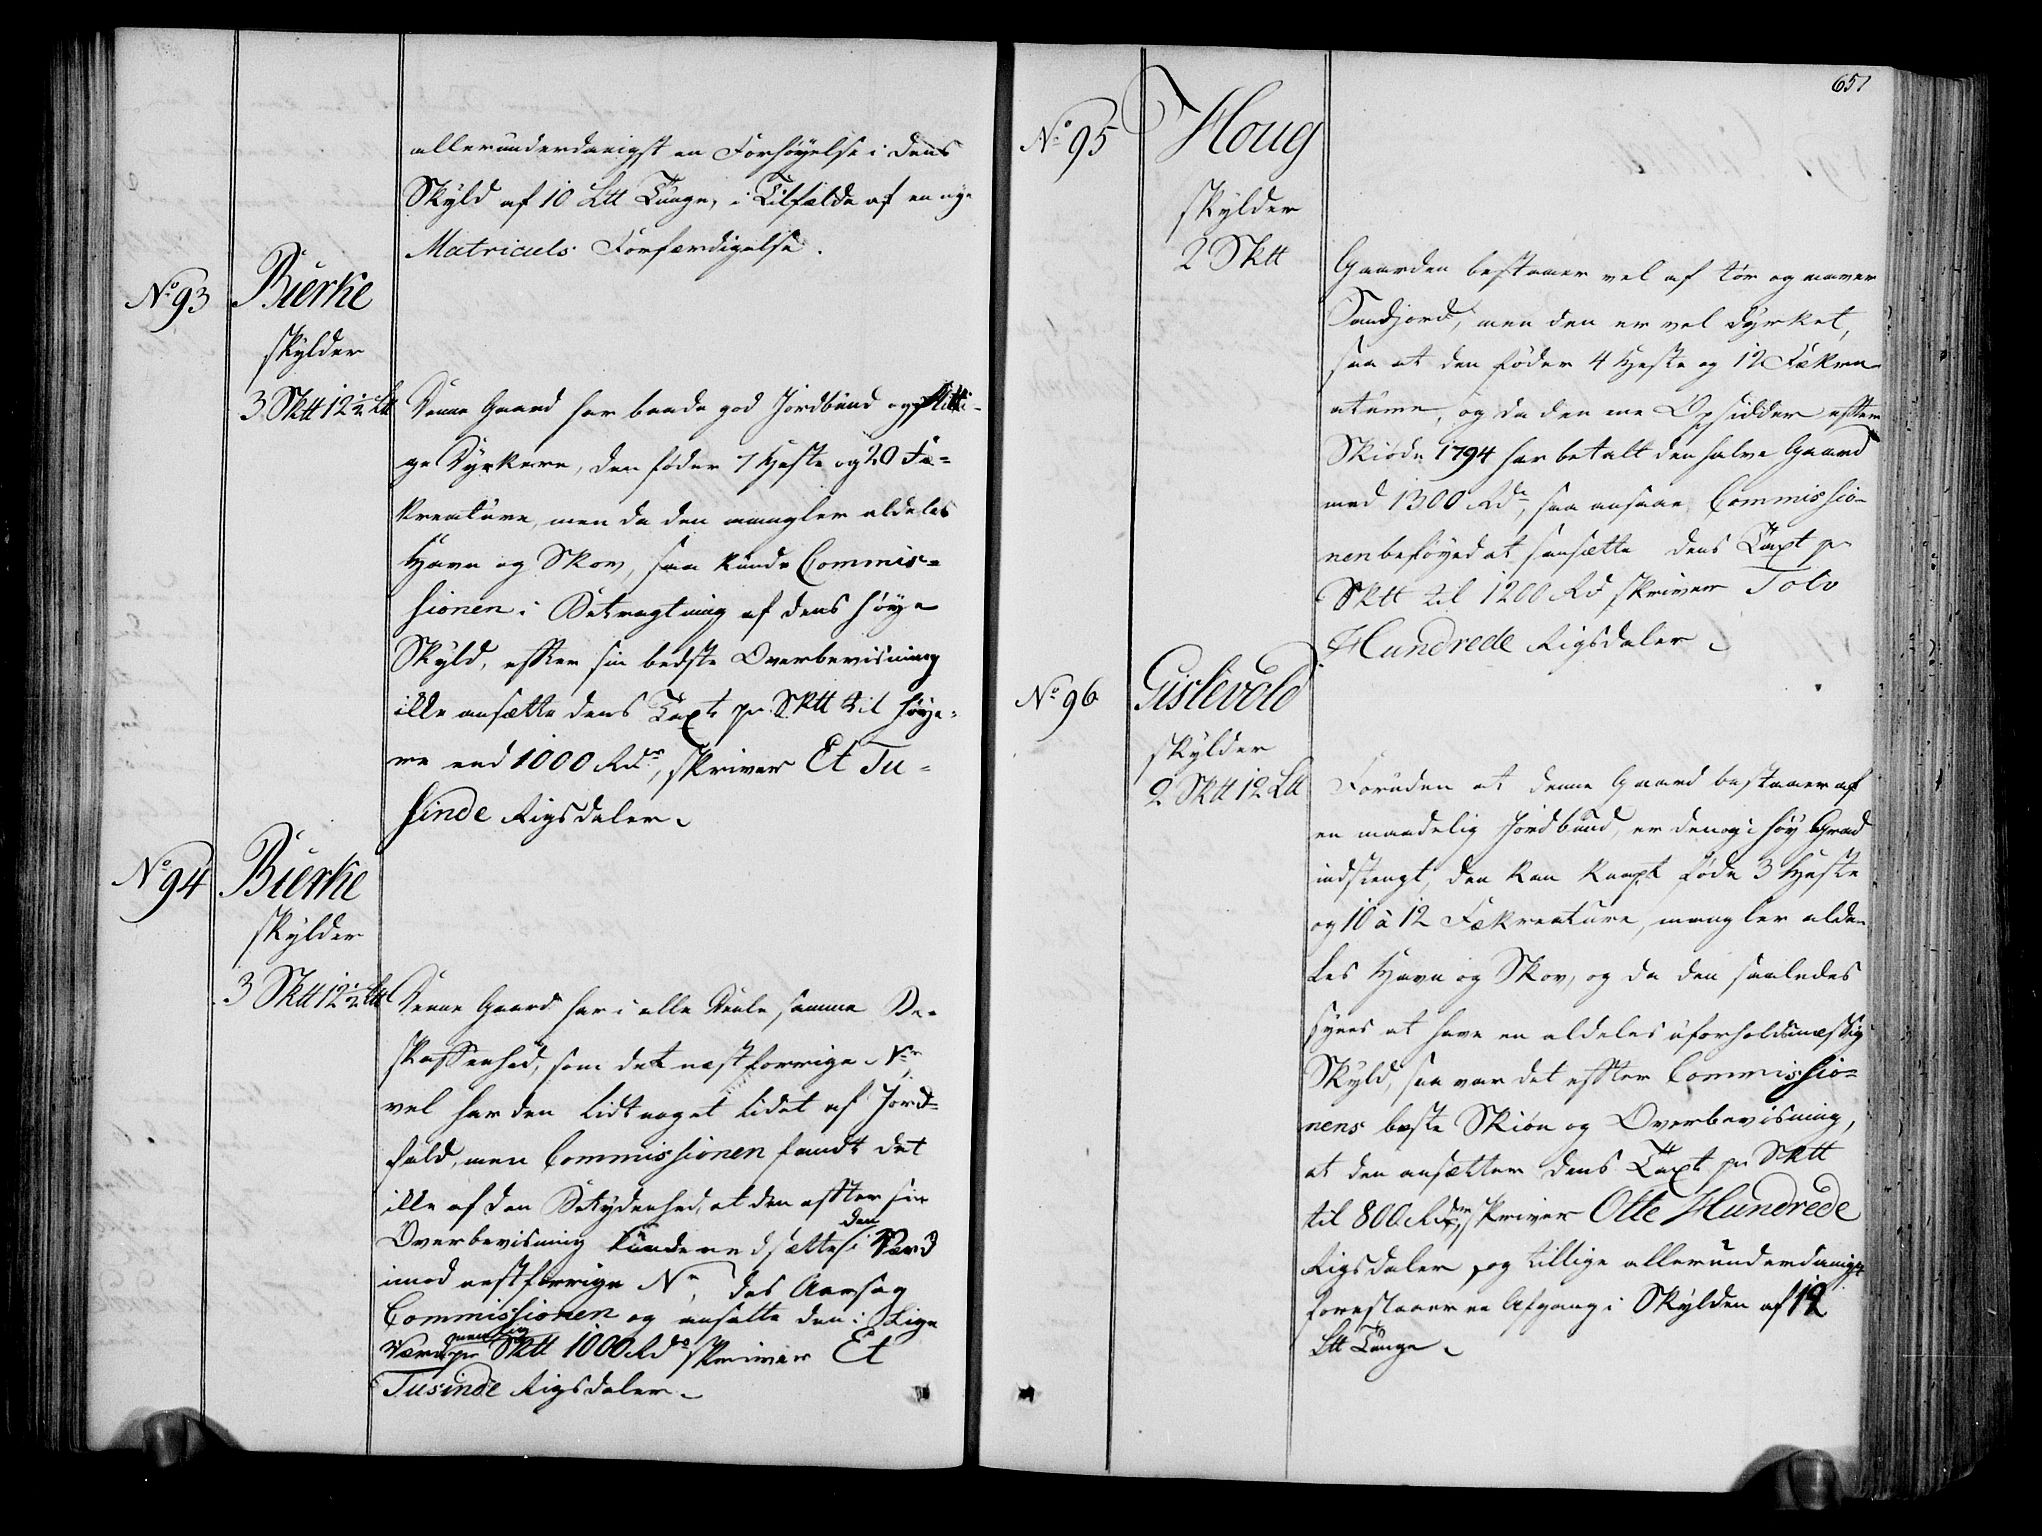 allerunderdanigst en Forhøyelse i dens
Skyld af 10 Ltt Tunge, i Tilfælde af en nye
Matriculs Forfærdigelse.
No 93
Bierke
skylder
3 Sktt 12 1/2 Ltt
Denne Gaard har baade god Jordbund og flitti-
ge Dyrkere, den føder 7 Heste og 20 Fæ-
kreature, men da den mangler aldeles
Havn og Skov, saa kunde Commis-
sionen i Betragtning af dens høye
Skyld, efter sin bedste Overbevisning
ikke ansætte dens Taxt pr. Sktt til høye-
re end 1000 Rdr, skriver Et Tu-
sinde Rigsdaler.
No 94
Bierke
skylder
3 Sktt 12 1/2 Ltt
Denne Gaard har i alle Deele samme Be-
skaffenhed, som det næstforrige Nr,
vel har den lidt noget lidet af Jord-
fald, men Commissionen fandt det
ikke af den Betydenhed, at den efter sin
Overbevisning kunde nedsætte den i Værd
imod næstforrige Nr, das Aarsag
Commissionen og ansatte den i Lige
Værd nemlig pr Sktt 1000 Rdr skriver Et
Tusinde Rigsdaler.
651
No 95
Houg
skylder
2 Sktt
Gaarden bestaaer vel af tør og maver
Sandjord, men den er vel dyrket,
saa at den føder 4 Heste og 12 Fækre-
ature, og da den ene Opsidder efter
Skiøde 1794 har betalt den halve Gaard
med 1300 Rdr, saa ansaae Commissio-
nen beføyed at fansætte dens Taxt pr
Sktt til 1200 Rd skriver Tolv
Hundrede Rigsdaler.
No 96
Gislevold
skylder
2 Sktt 12 Ltt
Foruden at denne Gaard bestaaer af
en maadelig Jordbund, er den og i høy Grad
indstengt, den kan knapt føde 3 Heste
og 10 à 12 Fækreature, mangler alde-
les Havn og Skov, og da den saaledes
synes at have en aldeles uforholdsmæssig
Skyld, saa var det efter Commissio-
nens beste Skiøn og Overbevisning,
at den ansætter dens Taxt pr Sktt
til 800 Rdr, skriver Otte Hundrede
Rigsdaler, og tillige allerunderdanigst
forestaaer en Afgang i Skylden af 12
Ltt Tunge.